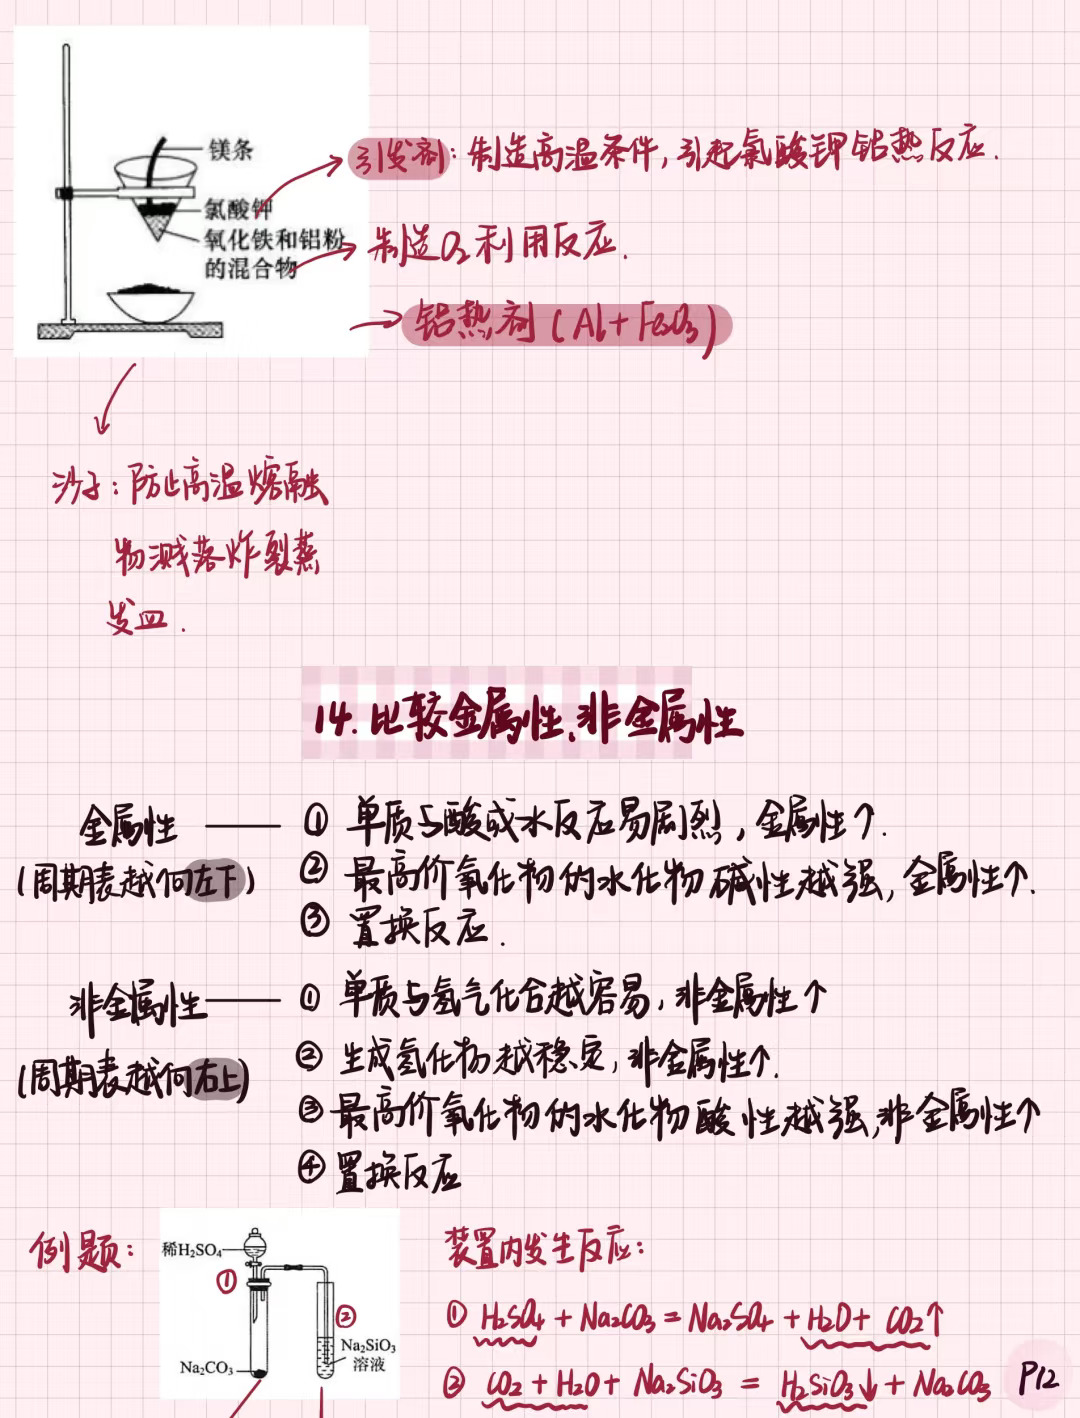 镁条
氯酸钾
氧化铁和铝粉
的混合物
引发剂：制造高温条件，引起氯酸钾铝热反应.
制造O₂利用反应.
铝热剂（Al+Fe₂O₃）
沙子：防止高温熔融
物溅落炸裂蒸
发皿.
14.比较金属性、非金属性
金属性 —— ① 单质与酸或水反应易剧烈，金属性↑.
(周期表越向左下) ② 最高价氧化物的水化物碱性越强，金属性↑.
③ 置换反应.
非金属性 —— ① 单质与氢气化合越容易，非金属性↑
② 生成氢化物越稳定，非金属性↑.
(周期表越向右上)
③ 最高价氧化物的水化物酸性越强,非金属性↑
④ 置换反应
例题：
稀H₂SO₄
①
②
Na₂SiO₃
溶液
Na₂CO₃
装置内发生反应：
① H₂SO₄ + Na₂CO₃ = Na₂SO₄ + H₂O + CO₂↑
② CO₂ + H₂O + Na₂SiO₃ = H₂SiO₃↓ + Na₂CO₃
P12